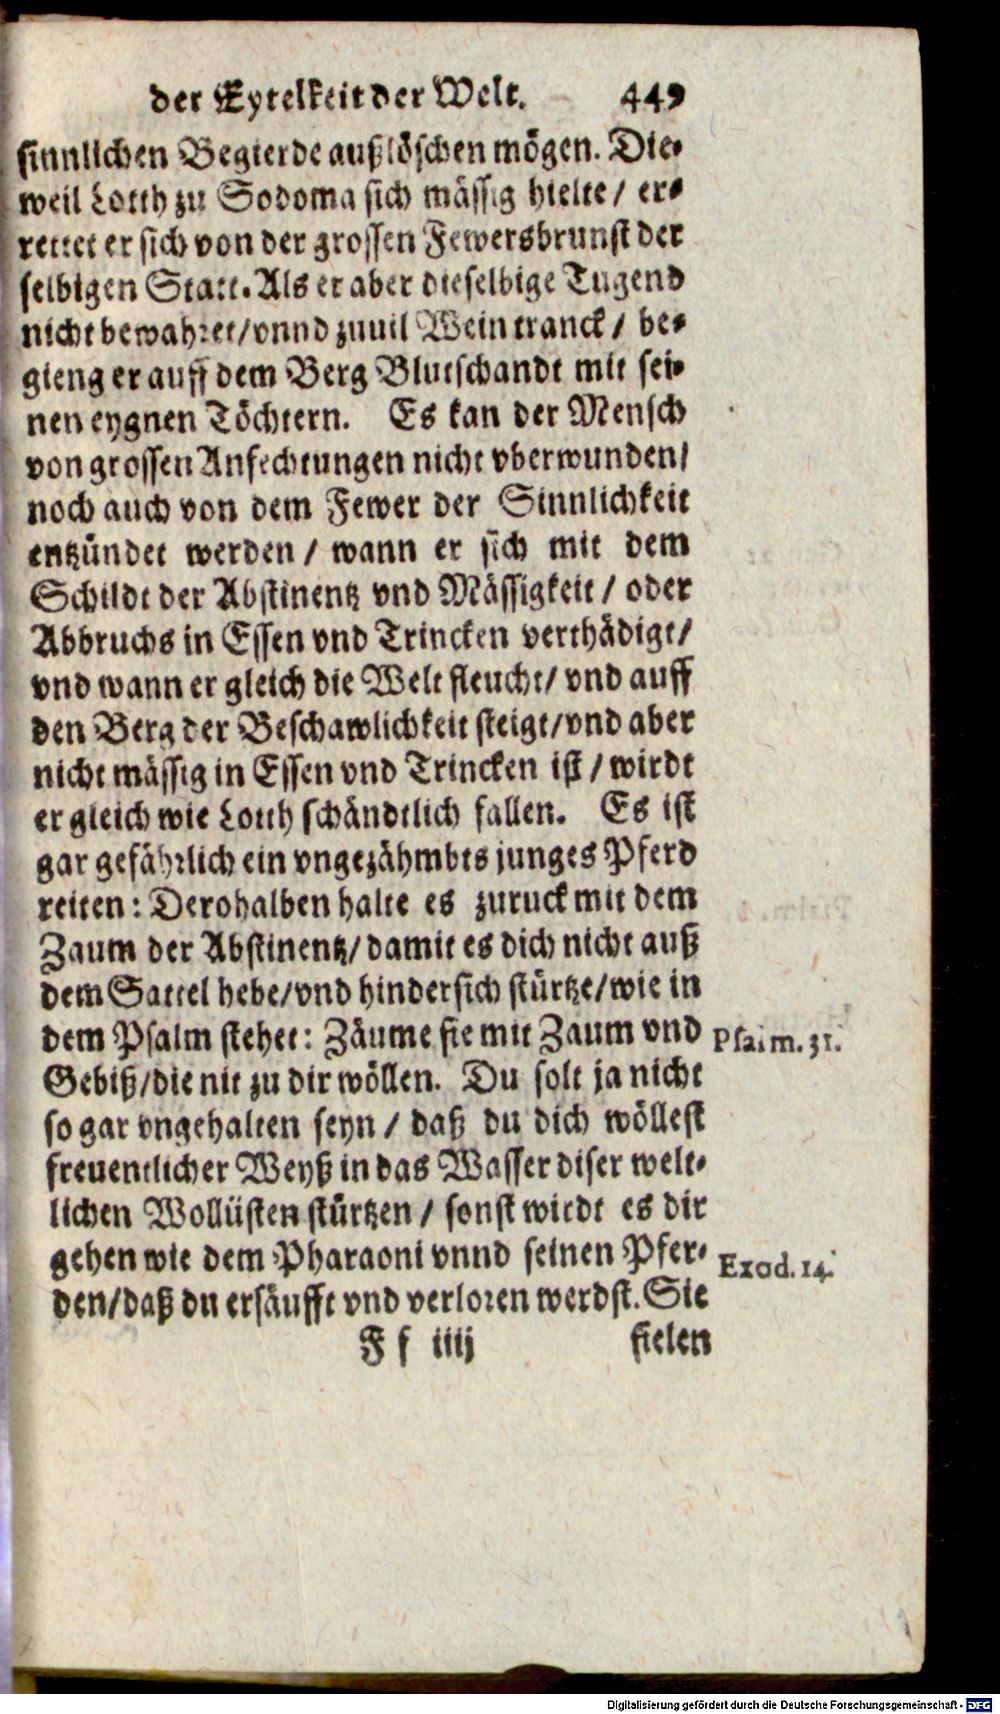 der Eytelkeit der Welt. 449
sinnlichen Begierde außlöschen mögen. Die-
weil Lotth zu Sodoma sich mässig hielte / er-
rettet er sich von der grossen Fewersbrunst der
selbigen Statt. Als er aber dieselbige Tugend
nicht bewahret/vnnd zuuil Wein tranck / be-
gieng er auff dem Berg Blutschandt mit sei-
nen eygnen Töchtern. Es kan der Mensch
von grossen Anfechtungen nicht vberwunden/
noch auch von dem Fewer der Sinnlichkeit
entzündet werden / wann er sich mit dem
Schildt der Abstinentz vnd Mässigkeit / oder
Abbruchs in Essen vnd Trincken verthädigt/
vnd wann er gleich die Welt fleucht/ vnd auff
den Berg der Beschawlichkeit steigt/vnd aber
nicht mässig in Essen vnd Trincken ist / wirdt
er gleich wie Lotth schändtlich fallen. Es ist
gar gefährlich ein vngezähmbts junges Pferd
reiten: Derohalben halte es zuruck mit dem
Zaum der Abstinentz/ damit es dich nicht auß
dem Sattel hebe/vnd hindersich stürtze/wie in
dem Psalm stehet: Zäume sie mit Zaum vnd Psalm. 31.
Gebiß/die nit zu dir wöllen. Du solt ja nicht
so gar vngehalten seyn / daß du dich wöllest
freuentlicher Weyß in das Wasser diser welt-
lichen Wollüsten stürtzen / sonst wirdt es dir
gehen wie dem Pharaoni vnnd seinen Pfer- Exod. 14.
den/daß du ersäufft vnd verloren werdst. Sie
F f iiij fielen
Digitalisierung gefördert durch die Deutsche Forschungsgemeinschaft - DFG